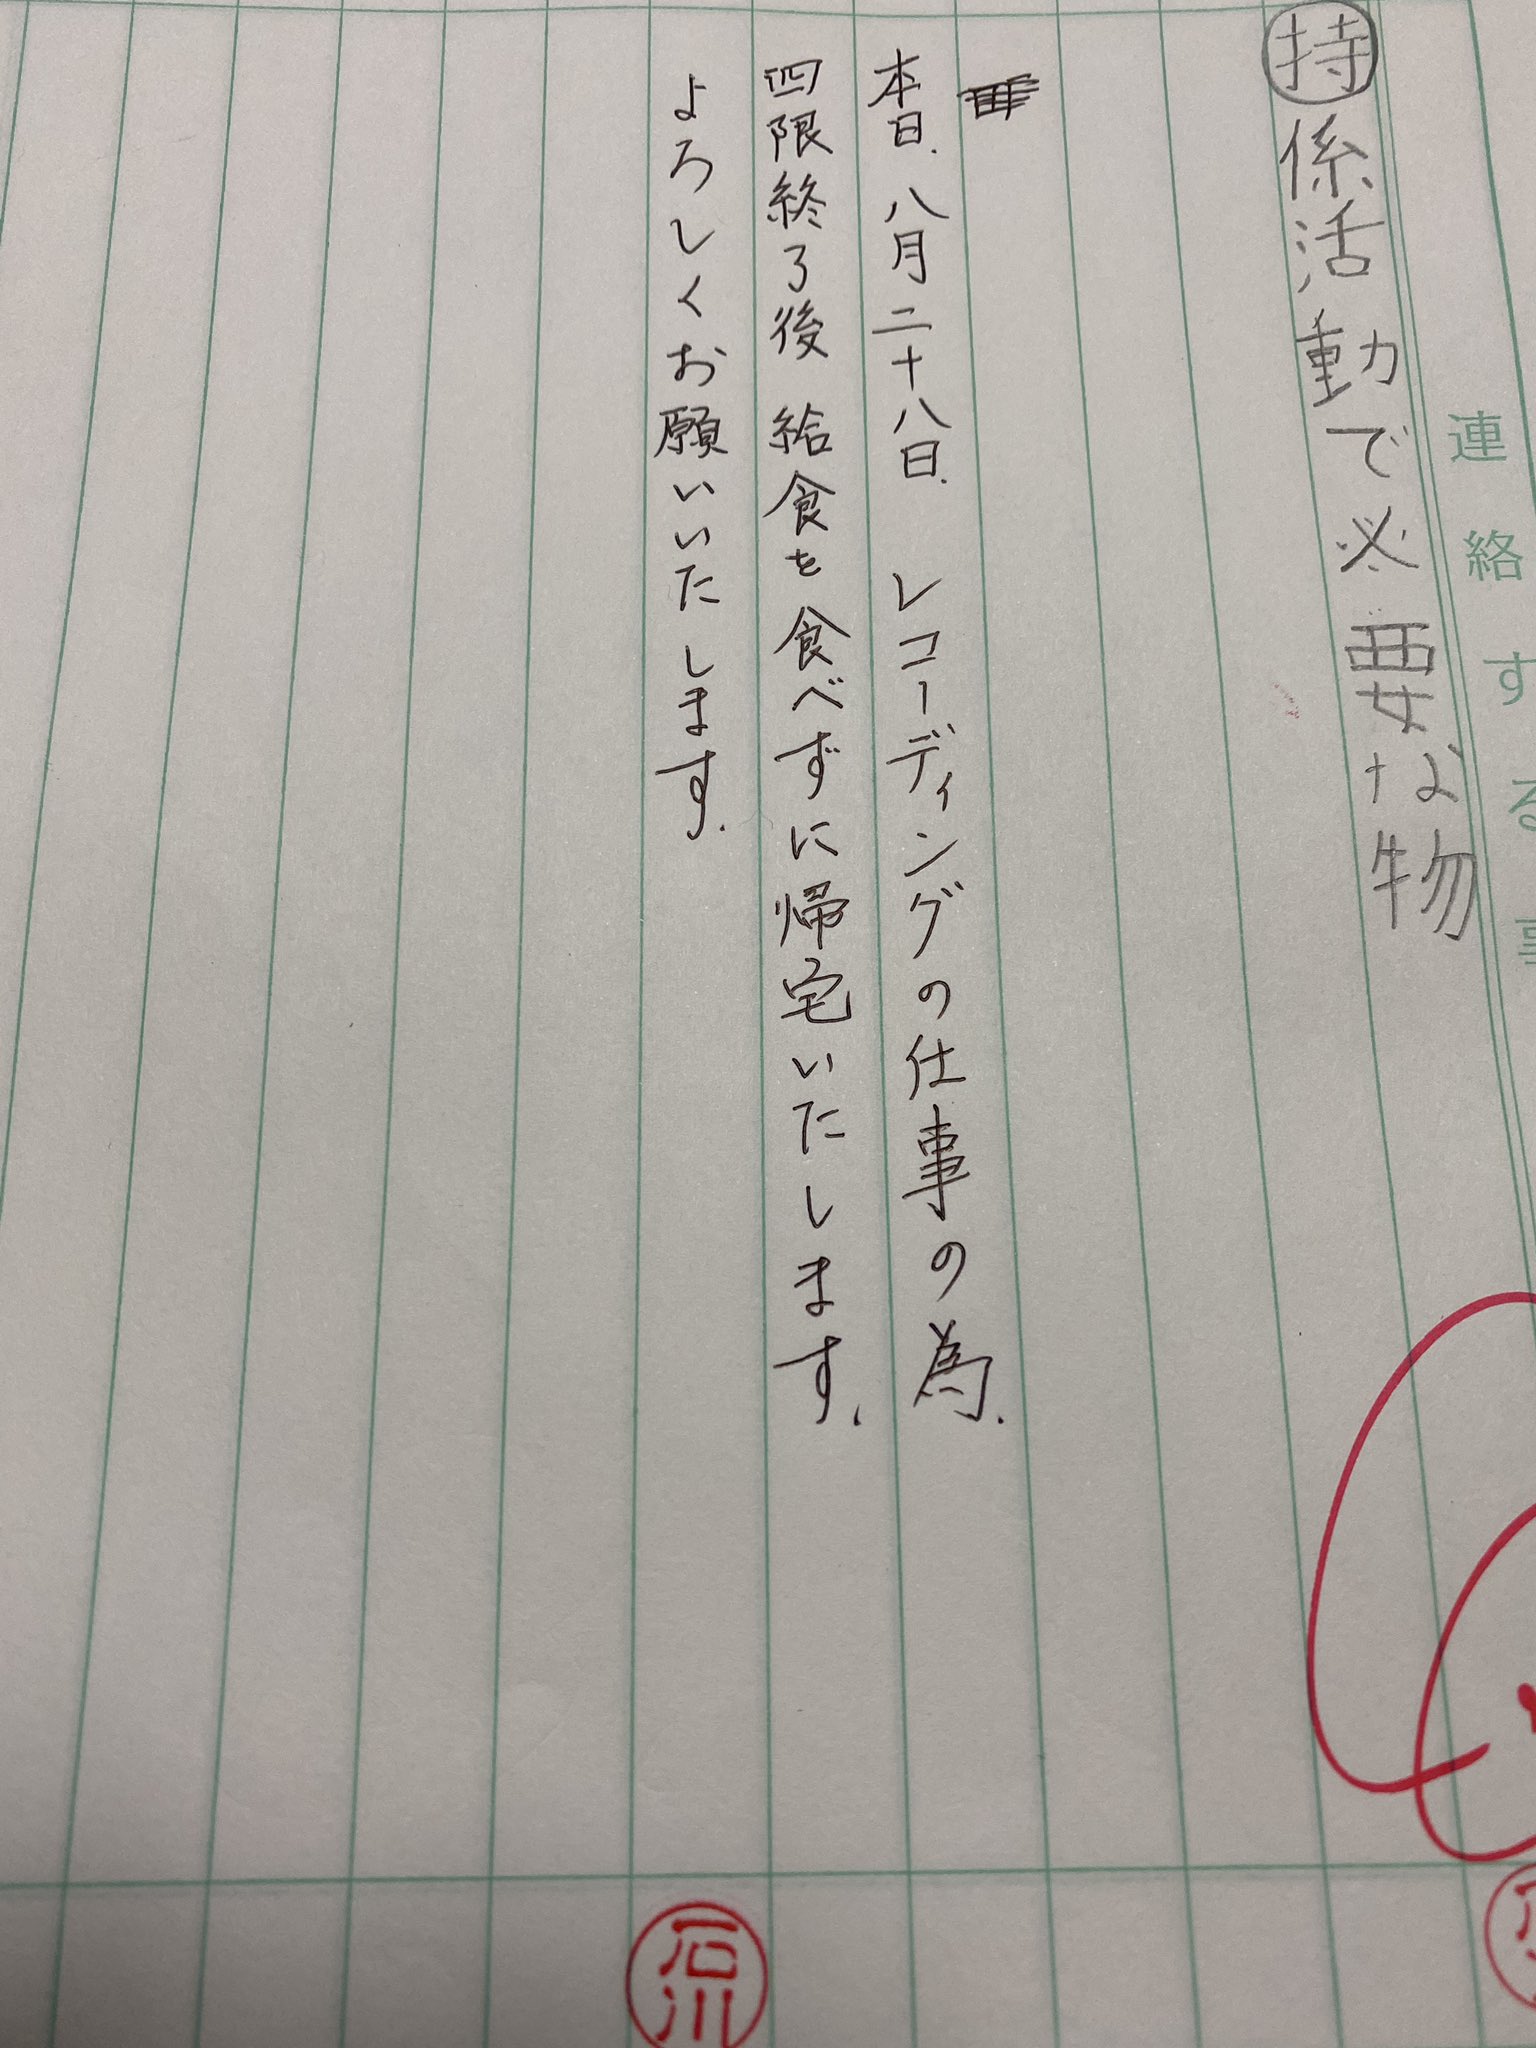 連絡する事
持 係活動で必要な物
本日、八月二十八日、レコーディングの仕事の為、
四限終了後 給食を食べずに帰宅いたします。
よろしくお願いいたします。
石川